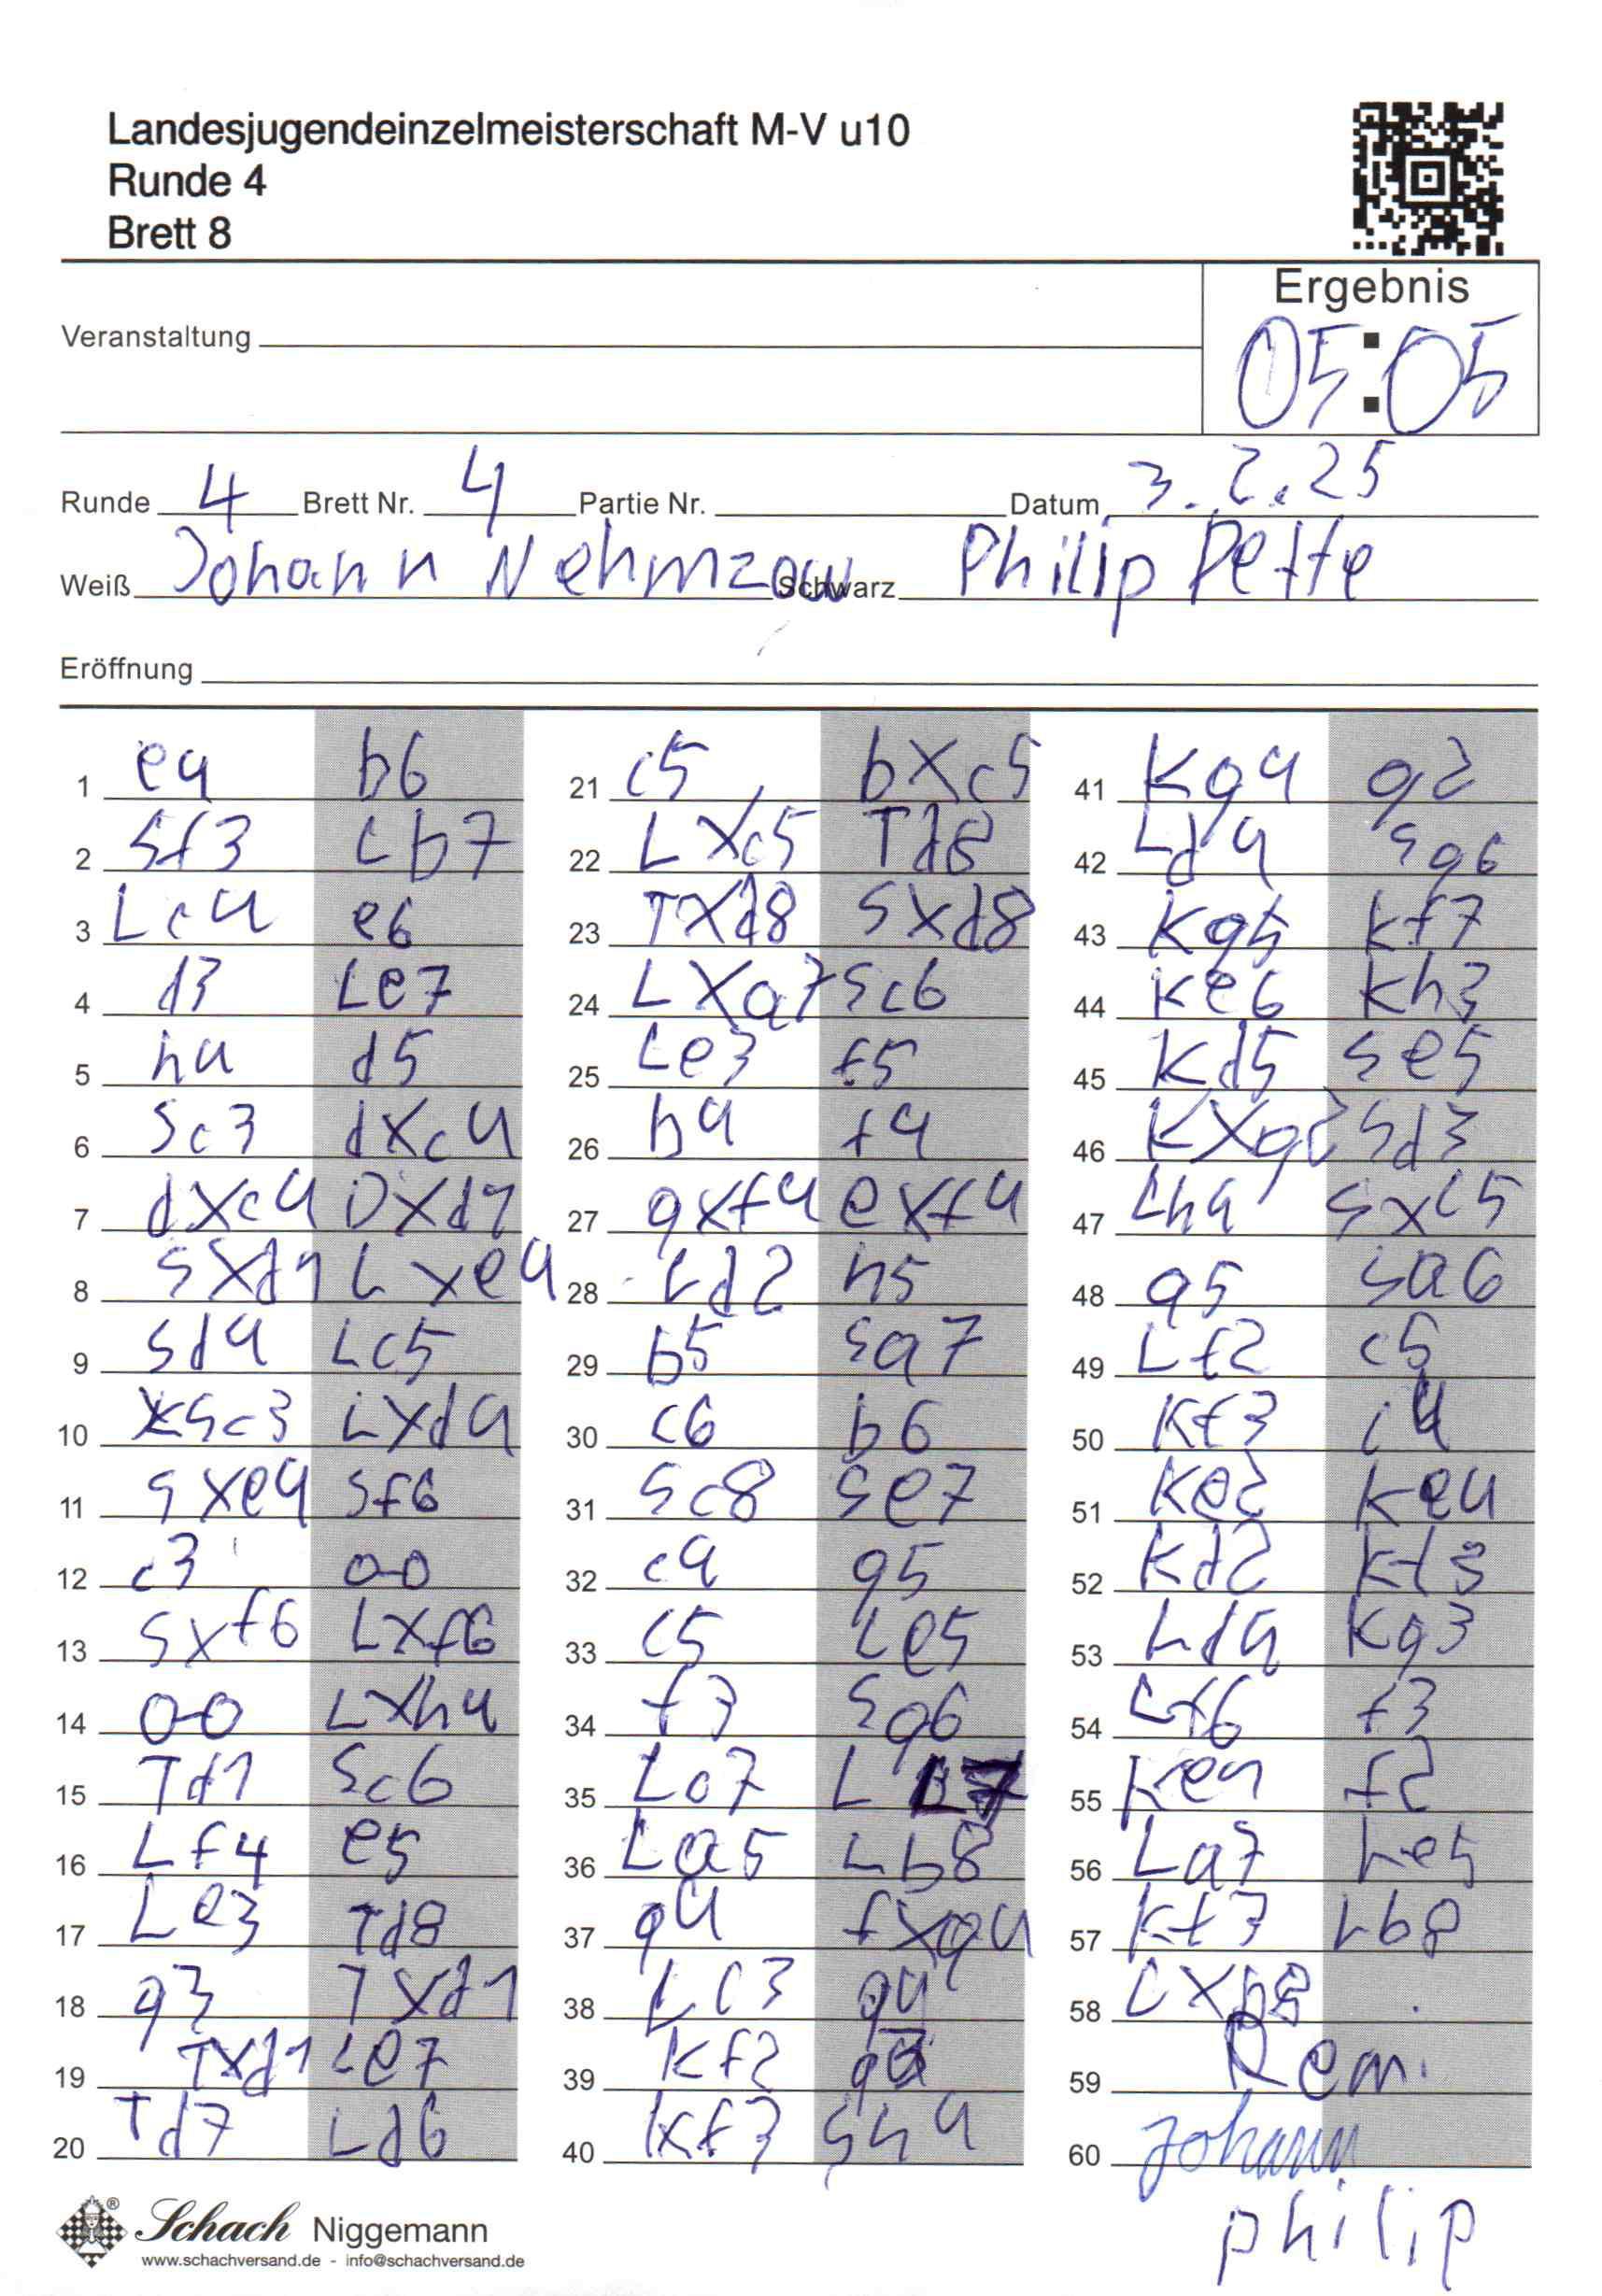 Landesjugendeinzelmeisterschaft M-V u10
Runde 4
Brett 8
Ergebnis
05:05
Veranstaltung
Runde 4 Brett Nr. 4 Partie Nr. Datum 3.2.25
Weiß Johann Nehmzow Schwarz Philip Pette
Eröffnung
1 e4 b6
2 Sf3 Lb7
3 Lc4 e6
4 d3 Le7
5 h4 d5
6 Sc3 dXc4
7 dXc4 DXd1
8 SXd1 LXe4
9 Sd4 Lc5
10 Sc3 LXd4
11 SXe4 Sf6
12 c3 0-0
13 SXf6 LXf6
14 0-0 LXh4
15 Td1 Sc6
16 Lf4 e5
17 Le3 Td8
18 g3 TXd1
19 TXd1 Le7
20 Td7 Ld6
21 c5 bXc5
22 LXc5 Td8
23 TXd8 SXd8
24 LXa7 Sc6
25 Le3 f5
26 b4 f4
27 gXf4 eXf4
28 Ld2 h5
29 b5 Sa7
30 c6 b6
31 Sc8 Se7
32 c4 g5
33 c5 Le5
34 f3 Sg6
35 La7 L
36 La5 Lb8
37 g4 fXg4
38 Lc3 g4
39 Kf2 g3
40 Kf3 Sh4
41 Kg4 g2
42 Ld4 Sg6
43 Kg5 Kf7
44 Ke6 Kh3
45 Kd5 Se5
46 KXg2 Sd3
47 Lh4 SXc5
48 a5 Sa6
49 Lf2 c5
50 Kf3 c4
51 Ke2 Ke4
52 Kd2 Kf3
53 Ld4 Kg3
54 Lf6 f3
55 Ke1 f2
56 La7 Le5
57 Kf3 Lb8
58 LXb8
59 Remi
60 Johann
Philip
Schach Niggemann
www.schachversand.de - info@schachversand.de